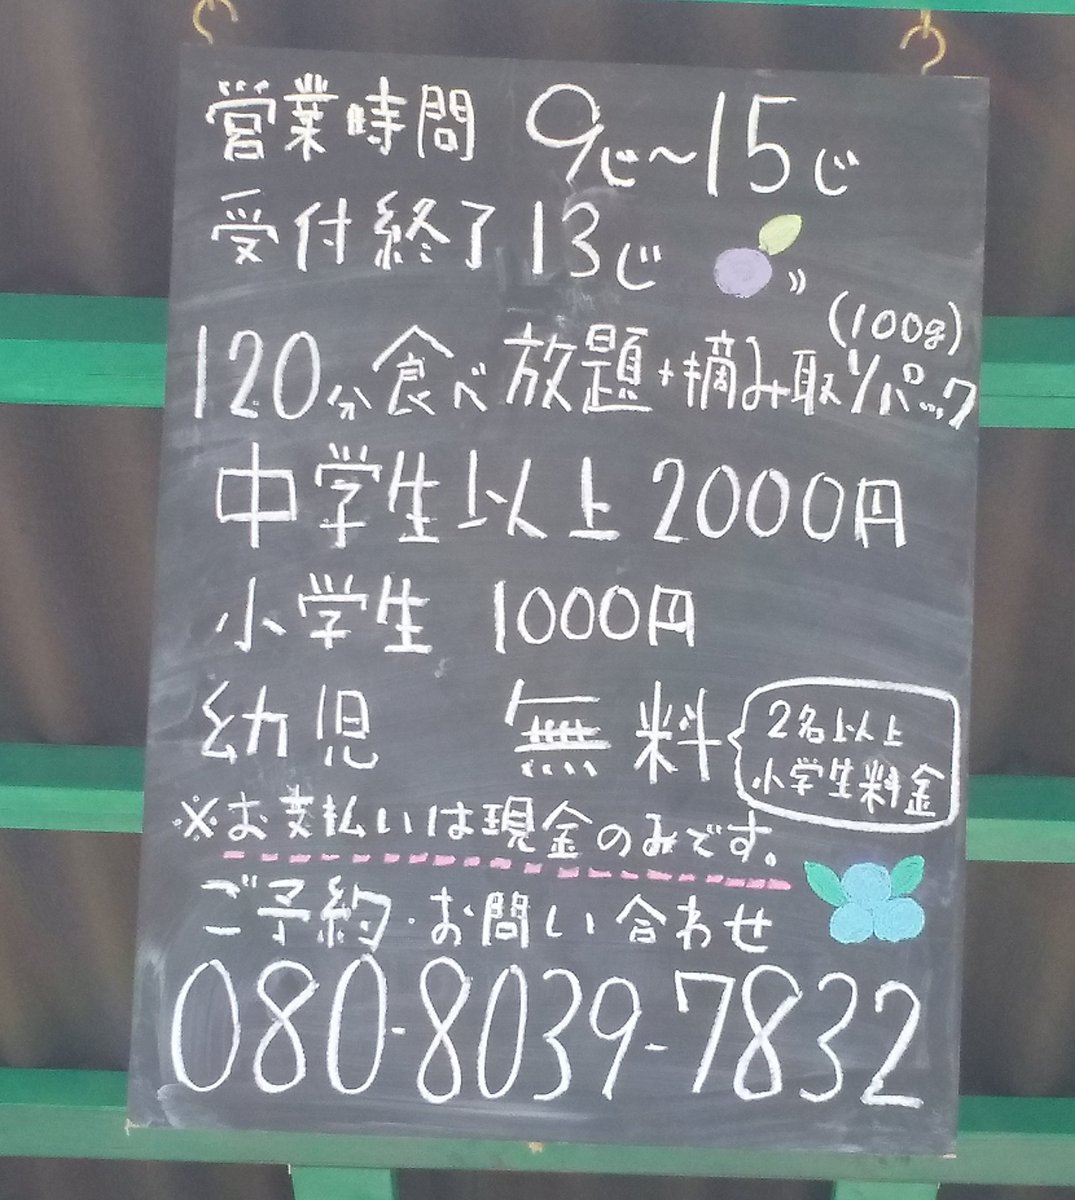 営業時間 9じ～15じ
受付終了 13じ
(100g)
120分食べ放題+摘み取りパック
中学生以上 2000円
小学生 1000円
幼児 無料
2名以上
小学生料金
※お支払いは現金のみです。
ご予約・お問い合わせ
080-8039-7832